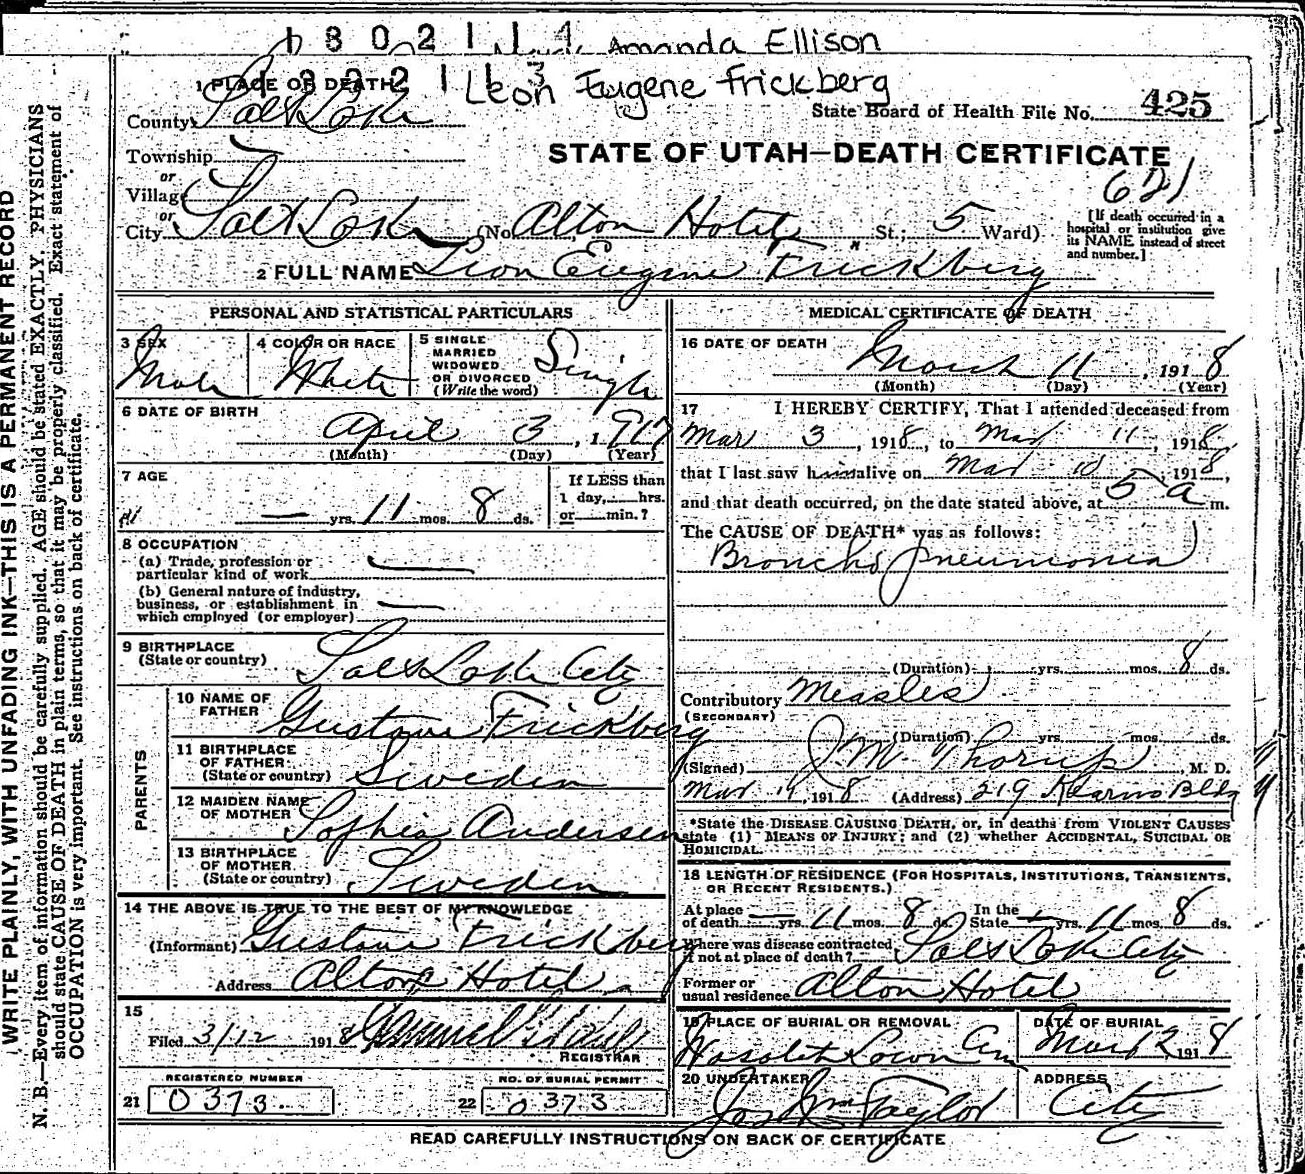 1 3 0 2 1 1 4 Amanda Ellison
1 3 0 2 1 1 3 Leon Eugene Frickberg
1 PLACE OF DEATH
County Salt Lake
State Board of Health File No. 425
Township
STATE OF UTAH—DEATH CERTIFICATE
or
Village
621
or
City Salt Lake (No. Alton Hotel St.; 5 Ward)
[If death occurred in a
hospital or institution give
its NAME instead of street
and number.]
2 FULL NAME Leon Eugene Frickberg
PERSONAL AND STATISTICAL PARTICULARS
3 SEX Male
4 COLOR OR RACE White
5 SINGLE
MARRIED
WIDOWED
OR DIVORCED
(Write the word) Single
6 DATE OF BIRTH
April 3, 1917
(Month) (Day) (Year)
7 AGE
— yrs. 11 mos. 8 ds.
If LESS than
1 day, hrs.
or min.?
8 OCCUPATION
(a) Trade, profession or
particular kind of work —
(b) General nature of industry,
business, or establishment in
which employed (or employer) —
9 BIRTHPLACE
(State or country) Salt Lake City
PARENTS
10 NAME OF
FATHER Gustave Frickberg
11 BIRTHPLACE
OF FATHER
(State or country) Sweden
12 MAIDEN NAME
OF MOTHER Sophia Andersen
13 BIRTHPLACE
OF MOTHER
(State or country) Sweden
14 THE ABOVE IS TRUE TO THE BEST OF MY KNOWLEDGE
(Informant) Gustave Frickberg
Address Alton Hotel
15
Filed 3/12 1918
REGISTRAR
REGISTERED NUMBER
21 0373
NO. OF BURIAL PERMIT
22 0373
MEDICAL CERTIFICATE OF DEATH
16 DATE OF DEATH
March 11, 1918
(Month) (Day) (Year)
17 I HEREBY CERTIFY, That I attended deceased from
Mar 3, 1918, to Mar 11, 1918,
that I last saw him alive on Mar 10, 1918,
and that death occurred, on the date stated above, at 5 a m.
The CAUSE OF DEATH* was as follows:
Broncho pneumonia
(Duration) yrs. mos. 8 ds.
Contributory Measles
(SECONDARY)
(Duration) yrs. mos. ds.
(Signed) J. M. Thorup M. D.
Mar 1918 (Address) 219 Kearns Bldg
*State the DISEASE CAUSING DEATH, or, in deaths from VIOLENT CAUSES
state (1) MEANS OF INJURY; and (2) whether ACCIDENTAL, SUICIDAL OR
HOMICIDAL.
18 LENGTH OF RESIDENCE (FOR HOSPITALS, INSTITUTIONS, TRANSIENTS,
OR RECENT RESIDENTS.)
At place
of death — yrs. 11 mos. 8 ds. In the
State — yrs. 11 mos. 8 ds.
Where was disease contracted
if not at place of death? Salt Lake City
Former or
usual residence Alton Hotel
19 PLACE OF BURIAL OR REMOVAL
Wasatch Lawn Cem
DATE OF BURIAL
Mar 12 1918
20 UNDERTAKER
Jos Wm Taylor
ADDRESS
City
READ CAREFULLY INSTRUCTIONS ON BACK OF CERTIFICATE
WRITE PLAINLY, WITH UNFADING INK—THIS IS A PERMANENT RECORD
N. B.—Every item of information should be carefully supplied. AGE should be stated EXACTLY. PHYSICIANS
should state CAUSE OF DEATH in plain terms, so that it may be properly classified. Exact statement of
OCCUPATION is very important. See instructions on back of certificate.